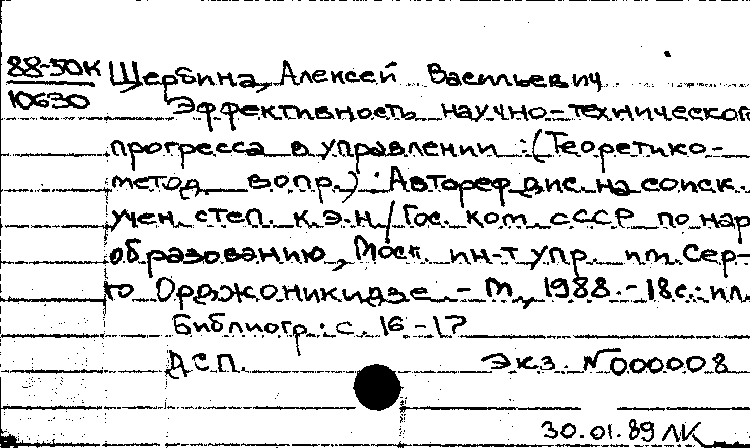 88-50К Щербина, Алексей Васильевич
10630 Эффективность научно-техническог
прогресса в управлении : (Теоретико-
метод. вопр.) : Автореф. дис. на соиск.
учен. степ. к.э.н / Гос. ком. СССР по нар
образованию, Моск. ин-т упр. им. Сер-
го Орджоникидзе. - М., 1988. - 18 с.: ил.
Библиогр.: с. 16-17
ДСП. Экз. N 000008
30.01.89 ЛК